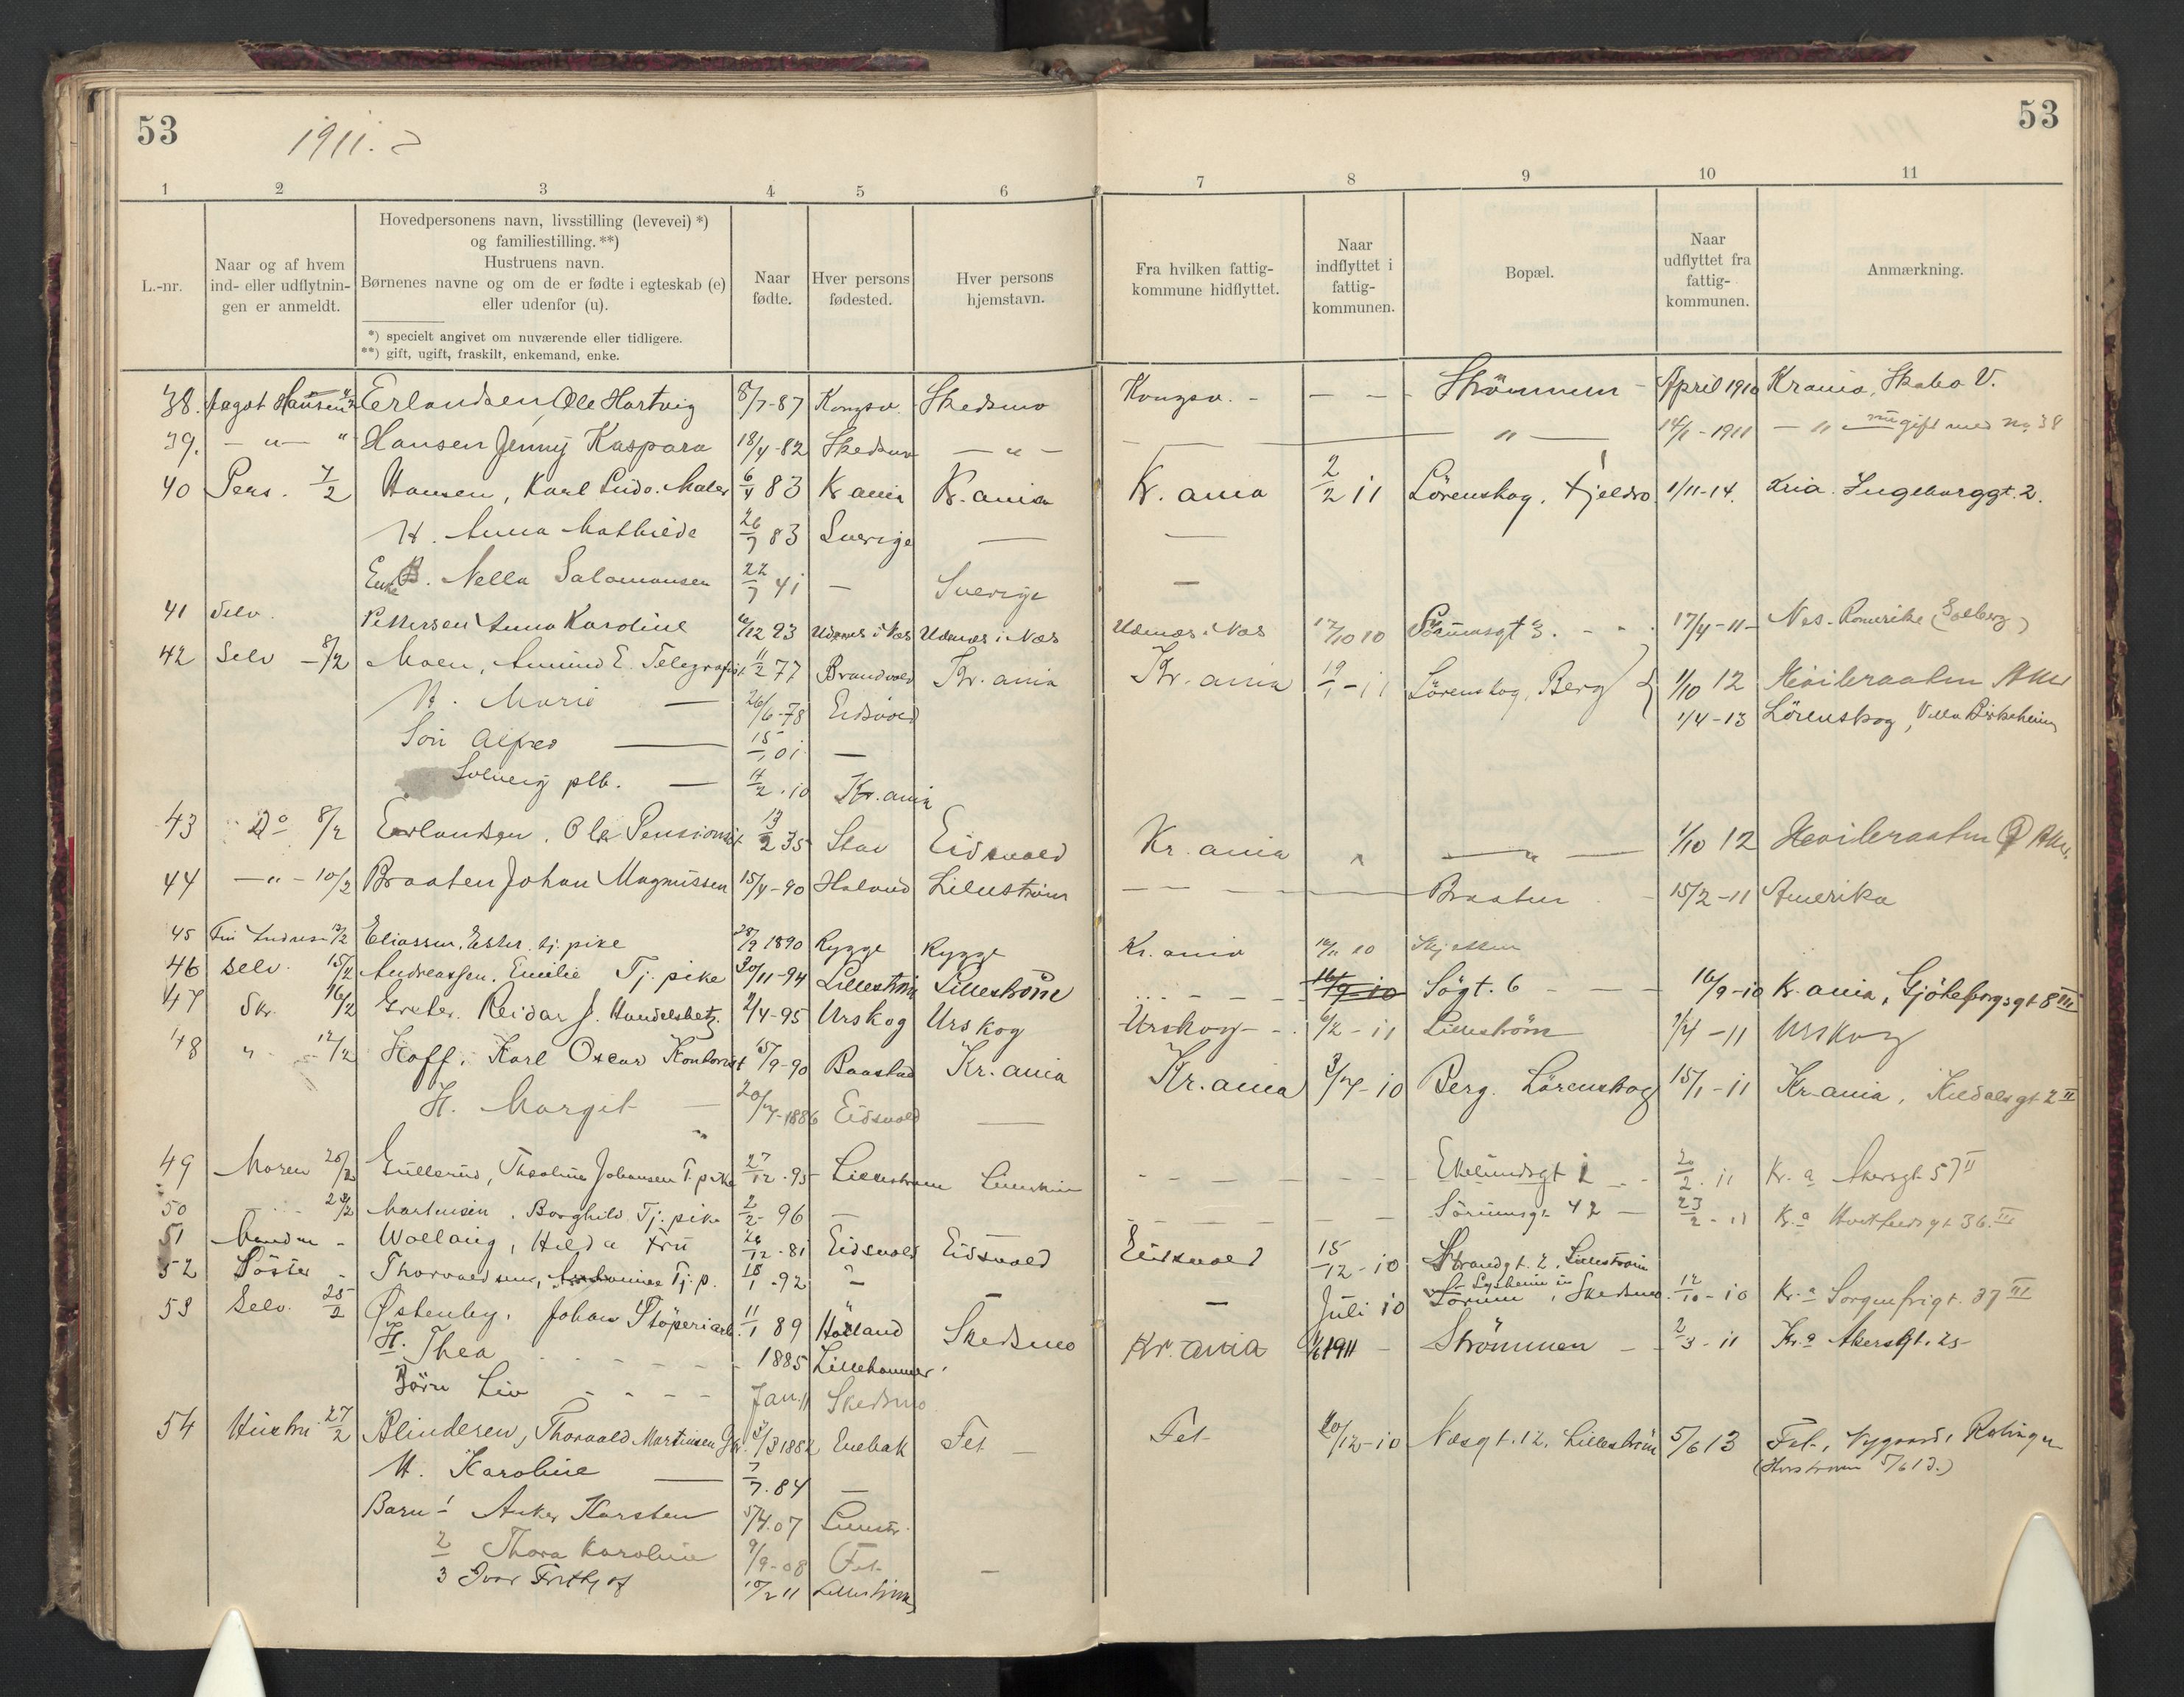 53
1911.
53
1 2 3 4 5 6 7 8 9 10 11
L.-nr.
Naar og af hvem ind- eller udflytningen er anmeldt.
Hovedpersonens navn, livsstilling (levevei) *)
og familiestilling. **)
Hustruens navn.
Børnenes navne og om de er fødte i egteskab (e)
eller udenfor (u).
*) specielt angivet om nuværende eller tidligere.
**) gift, ugift, fraskilt, enkemand, enke.
Naar fødte.
Hver persons fødested.
Hver persons hjemstavn.
Fra hvilken fattigkommune hidflyttet.
Naar indflyttet i fattigkommunen.
Bopæl.
Naar udflyttet fra fattigkommunen.
Anmærkning.
38. Hansen Erlandsen Ole Hartvig 8/7-87 Kongsv. Skedsmo Kongsv. - — — Strömmen - April 1910 Krania, Skabo V.
39. — " — " Hansen Jenny Kaspara 18/4-82 Skedsmo — " — — " — 14/1-1911 — " — nu gift med No 38
40 Pers. 7/2 Hansen, Karl Ludv. Maler 6/4 83 Kr ania Kr. ania Kr. ania 2/2 11 Lörenskog, Fjeldbo 1/11-14. Kria. Ingeborggt. 2.
H. Anna Mathilde 26/7 83 Sverige — —
Enke Nella Salamonsen 22/7 41 — Sverige —
41 Selv. Pettersen Anna Karoline 10/12 93 Udenes i Nes Udenes i Nes Udenes i Nes 17/10 10 Sörumsgt 3. 17/4-11 - Nes-Romerike (Solberg)
42 Selv - 8/2 Moen, Amund E. Telegrafist 11/2 77 Brandvold Kr. ania Kr. ania 19/1-11 Lörenskog, Berg 1/10 12 Höibraaten Aker
H. Marie — 26/6-78 Eidsvold 1/4-13 Lörenskog, Villa Birkeheim
Sön Alfred — 15/1 01 —
Solveig plb. — 4/2.10 Kr. ania
43 Do 8/2 Erlandsen, Ole Pensionist 13/2 35 Eidsvold Kr. ania " — " — 1/10 12 Höibraaten Aker
44 — " — 10/2 Braaten Johan Magnussen 15/4-90 Höland Lileström — — Braaten 15/2-11 Amerika
45 Eliassen, Ester, tj. pike 28/9 1890 Rygge Rygge Kr. ania 10
46 Selv. 15/2 Andreassen, Emilie Tj. pike 30/11-94 Lilleström Lilleström — 16/9-10 Sögt. 6 — 16/9-10 Kr. ania, Gjöteborgsgt 8 III
47 Skr. 16/2 Greter, Reidar J. Handelsbetj. 2/4-95 Urskog Urskog Urskog - 6/2-11 Lilleström 1/4-11 Urskog
48 " 17/2 Hoff, Karl Oscar Kontorist 15/9-90 Baastad Kr. ania Kr. ania 3/4-10 Berg. Lörenskog 15/1-11 Kr-ania, 2 II
H. Margit — 20/4-1886 Eidsvold —
49 Moren 20/2 Gullerud, Theoline Johansen T. pike 27/12.95 Lilleström Lilleström — Ekelundsgt 1 20/2.11 Kr. a Akersgt 57 II
50 Martinsen, Borghild Tj. pike 2/2-96 — — Sörumsgt 42 — 23/2-11 Kr. a Hvitfeldsgt 36. III
51 Manden - Wollaug, Hilda Fru 26/12-81 Eidsvold Eidsvold Eidsvold 15/12-10 Strandgt. 2, Lilleström
52 Söster - Thorvaldsen, Tj. p. 18/1-92 " — — Juli 10 Sörum, Skedsmo 12/10-10 Kr. a Sorgenfrigt. 37 III
53 Selv. 25/2 Østenby, Johan Stöperiarb. 11/1 89 Höland Skedsmo Kr. ania 1911 - Strömmen 2/3-11 Kr. a Akersgt. 25
H. Thea - 1885 Lillehammer
Börn Liv - Jan. 11 Skedsmo
54 Hustru 27/2 Blinderen, Thorvald Martinsen Gk. 3/3 1882 Enebak Fet — Fet 20/12-10 Nesgt. 12, Lilleström 5/6 13 Fet, Nygaard,
H. Karoline — 7/7.84 — 5/6 13.)
Barn 1 Anker Karsten 5/4.07 Lillestr.
2 Thora Karoline 9/9-08 Fet —
3 Ivar Frithjof 10/2 11 Lilleström